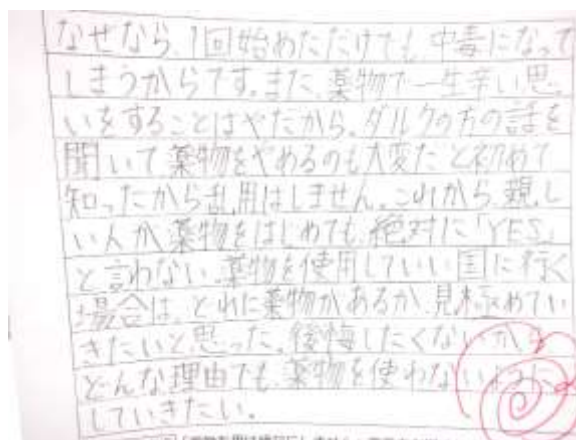 なぜなら、1回始めただけでも、中毒になって
しまうからです。また、薬物で一生辛い思
いをすることはやだから。ダルクの方の話を
聞いて薬物をやめるのも大変だと初めて
知ったから乱用はしません。これから、親し
い人が薬物をはじめても、絶対に「YES」
と言わない。薬物を使用していい国に行く
場合は、どれに薬物があるか、見極めてい
きたいと思った。後悔したくないから、
どんな理由でも、薬物を使わないように
していきたい。